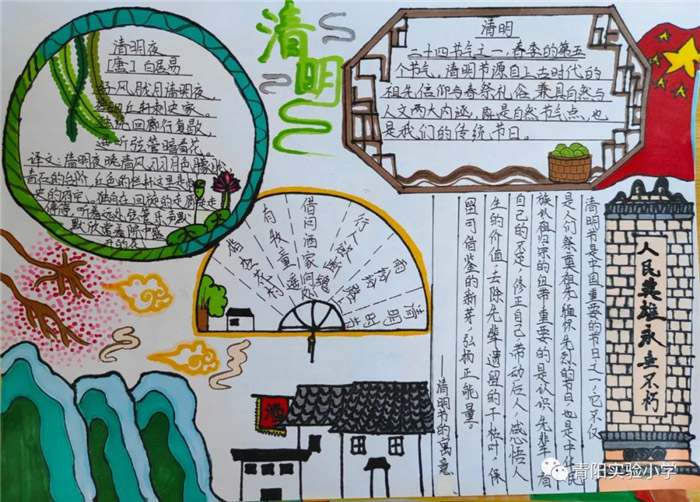 清明
清明夜
[唐] 白居易
好风胧月清明夜,
刺史家。
回廊行复歇,
遥听弦管暗看花。
译文:清明夜晚清风习习月色朦胧,
青石的台阶,红色的栏杆这里是
史的府宅,独自在回旋的走廊走走
停停,听着远处弦管乐声默
默欣赏着院中盛
开的花
清明
二十四节气之一,春季的第五
个节气,清明节源自上古时代的
祖先信仰与春祭礼俗,兼具自然与
人文两大内涵,既是自然节气点,也
是我们的传统节日。
清明时节
雨纷纷
行
欲断魂
借问酒家何处
有牧童遥
指杏花村
清明节是我国重要的节日之一,它不仅
是人们祭奠祖先、缅怀先烈的节日,也是中华民
族认祖归宗的纽带,重要的是认识先辈,看
自己的不足,修正自己,带动后人,感悟人
生的价值,去除先辈遗留的千枝叶,保
留可借鉴的新芽,弘扬正能量。
——清明节的寓意
人民英雄永垂不朽
青阳实验小学